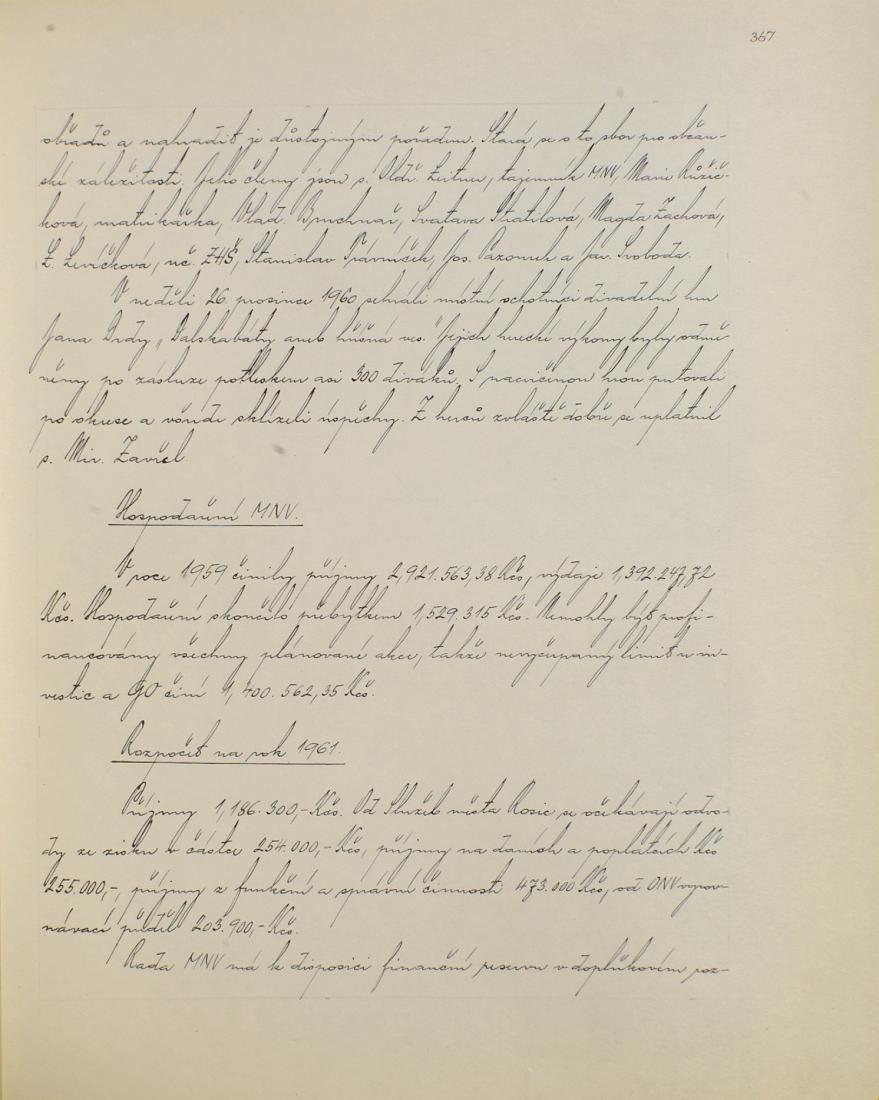 367
obřadů a nahradit je důstojným pořadem. Stará se o to sbor pro občan-
ské záležitosti. Jeho členy jsou s. Oldř. Leitner, tajemník MNV, Marie Růžič-
ková, matrikářka, Vlad. Bruchnař, Svatava Stratilová, Magda Zachová,
L. Levíčková, uč. ZHŠ, Stanislav Trávníček, Jos. Pazourek a Jar. Svoboda.
V neděli 26. prosince 1960 sehráli místní ochotníci divadelní hru
Jana Drdy „Dalskabáty aneb hříšná ves." Jejich herecké výkony byly odmě-
něny po zásluze potleskem asi 300 diváků. S nacvičenou hrou putovali
po okrese a všude sklízeli úspěchy. Z herců zvláště dobře se uplatnil
s. Mir. Zavřel.
Hospodaření MNV.
V roce 1959 činily příjmy 2,921.563,38 Kčs, výdaje 1,392.247,72
Kčs. Hospodaření skončilo přebytkem 1,529.315 Kčs. Nemohly být profi-
nancovány všechny plánované akce, takže nevyčerpaný limit u in-
vestic a GO činí 1,400.562,35 Kčs.
Rozpočet na rok 1961.
Příjmy 1,186.300,- Kčs. Od Služeb města Rosic se očekávají odvo-
dy ze zisku v částce 254.000,- Kčs, příjmy na daních a poplatcích Kčs
255.000,-, příjmy z funkční a správní činnosti 473.000 Kčs, od ONV vyrov-
návací příděl 203.900,- Kčs.
Rada MNV má k disposici finanční reservu v doplňkovém roz-